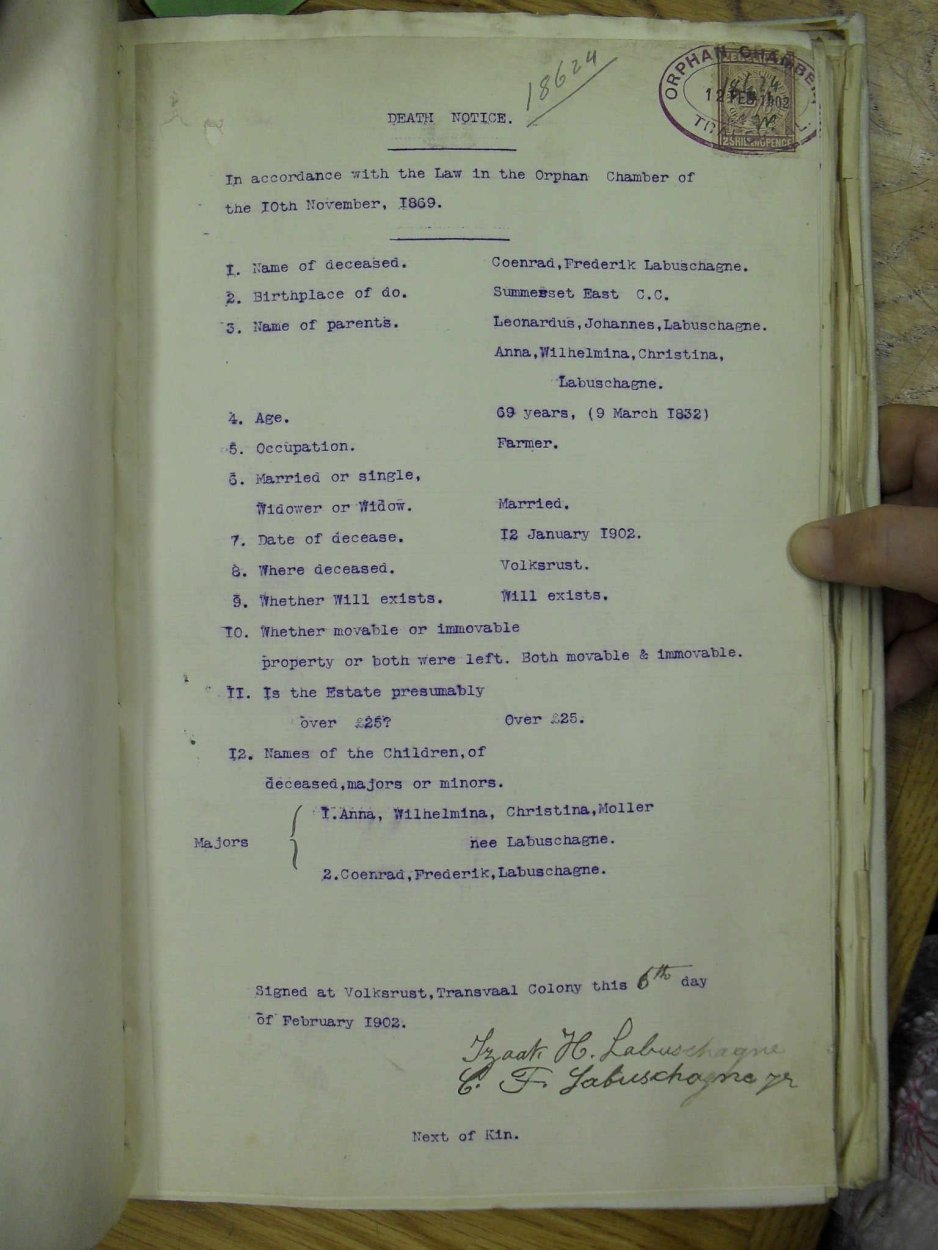 18624
ORPHAN CHAMBE
12 FEB 1902
2SHILLINGPENCE
DEATH NOTICE.
In accordance with the Law in the Orphan Chamber of
the IOth November, I869.
I. Name of deceased. Coenrad,Frederik Labuschagne.
2. Birthplace of do. Summerset East C.C.
3. Name of parents. Leonardus,Johannes,Labuschagne.
Anna,Wilhelmina,Christina,
Labuschagne.
4. Age. 69 years, (9 March I832)
5. Occupation. Farmer.
6. Married or single,
Widower or Widow. Married.
7. Date of decease. I2 January I902.
8. Where deceased. Volksrust.
9. Whether Will exists. Will exists.
IO. Whether movable or immovable
property or both were left. Both movable & immovable.
II. Is the Estate presumably
over £25? Over £25.
I2. Names of the Children,of
deceased,majors or minors.
I.Anna, Wilhelmina, Christina,Moller
Majors nee Labuschagne.
2.Coenrad,Frederik,Labuschagne.
Signed at Volksrust,Transvaal Colony this 6th day
of February I902.
Izaak H. Labuschagne
C. F. Labuschagne jr
Next of Kin.